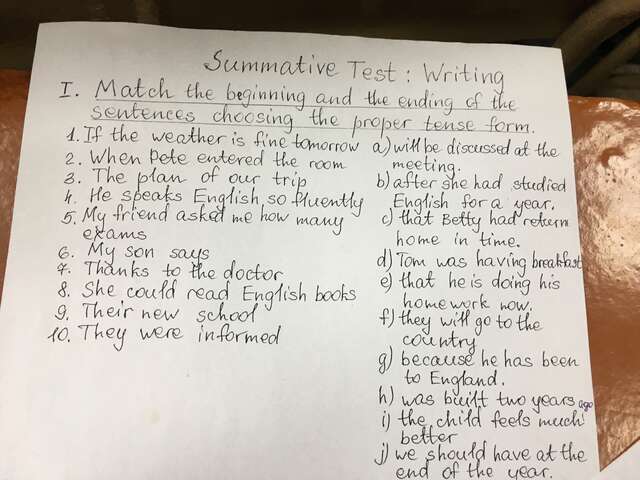 Summative Test: Writing
I. Match the beginning and the ending of the
sentences choosing the proper tense form.
1. If the weather is fine tomorrow
2. When Pete entered the room
3. The plan of our trip
4. He speaks English so fluently
5. My friend asked me how many
exams
6. My son says
7. Thanks to the doctor
8. She could read English books
9. Their new school
10. They were informed
a) will be discussed at the
meeting.
b) after she had studied
English for a year.
c) that Betty had return
home in time.
d) Tom was having breakfast
e) that he is doing his
homework now.
f) they will go to the
country
g) because he has been
to England.
h) was built two years ago
i) the child feels much
better
j) we should have at the
end of the year.